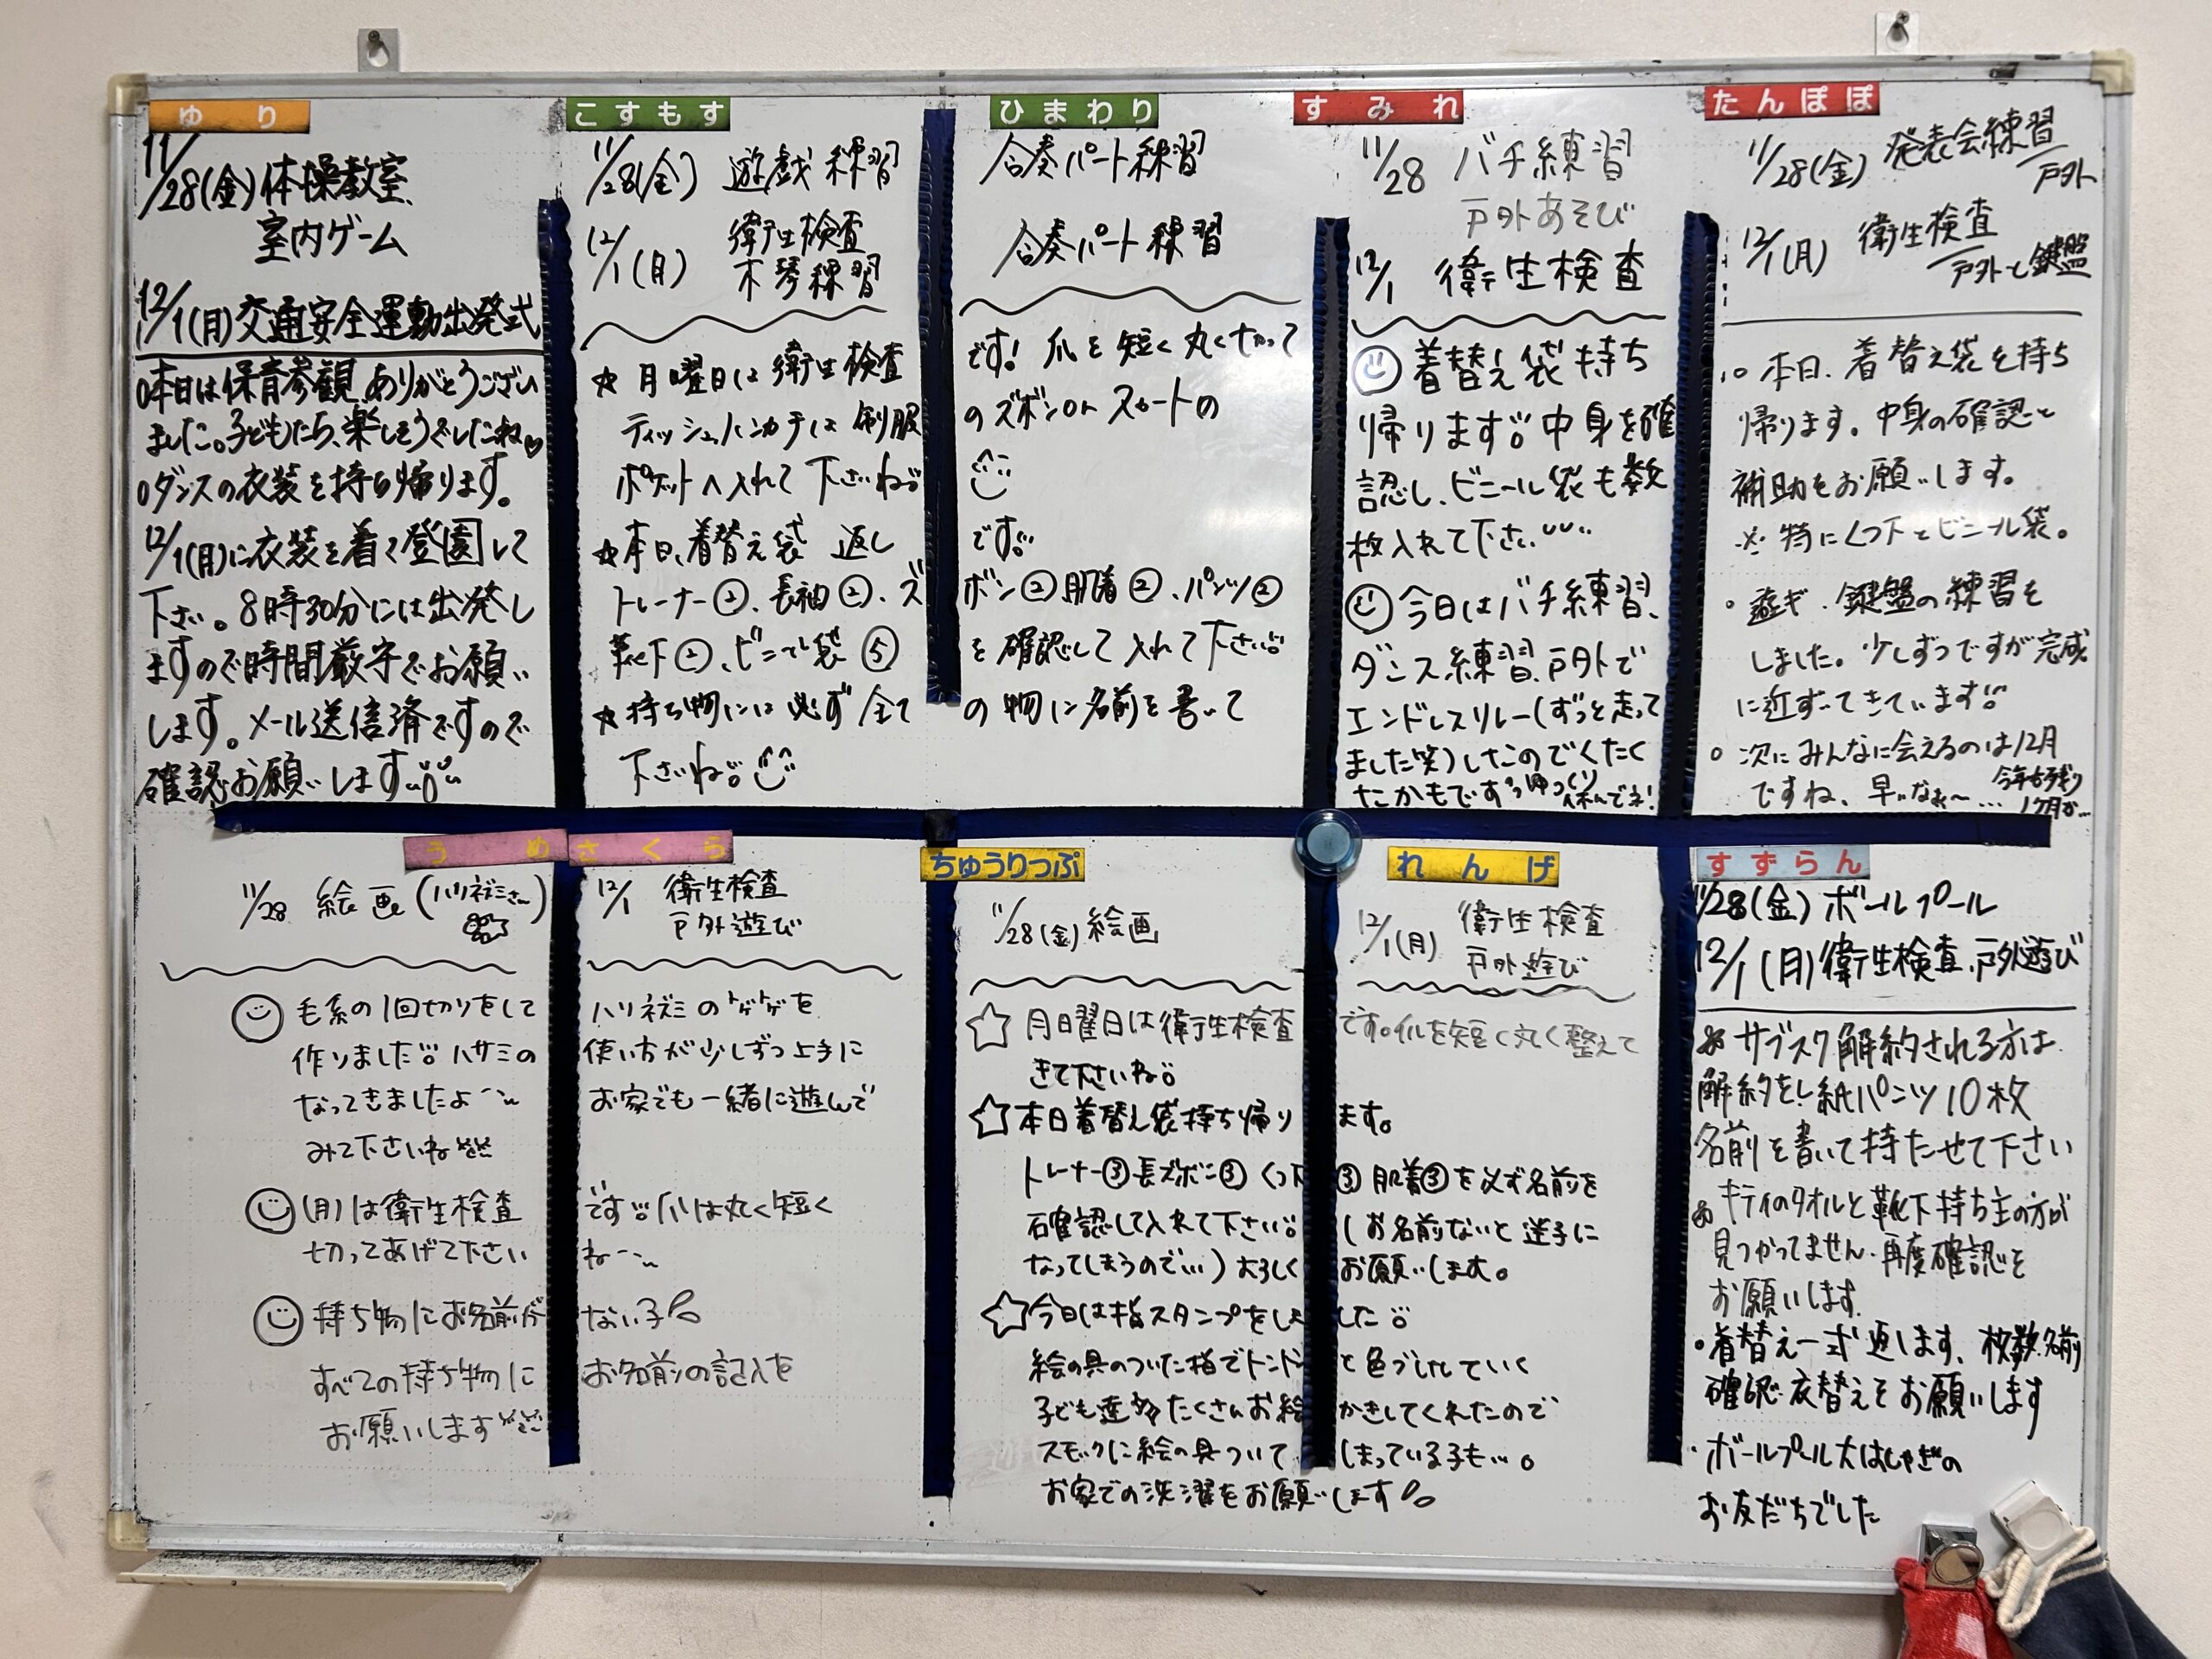 ゆり
11/28(金)体操教室、
室内ゲーム
12/1(月)交通安全運動出発式
○本日は保育参観、ありがとうござい
ました。子どもたち、楽しそうでしたね♡
○ダンスの衣装を持ち帰ります。
12/1(月)に衣装を着て登園して
下さい。8時30分には出発し
ますので時間厳守でお願い
します。メール送信済ですので
確認お願いします
こすもす
ひまわり
11/28(金) 遊戯練習 合奏パート練習
12/1(月) 衛生検査
木琴練習 合奏パート練習
☆月曜日は衛生検査です!爪を短く丸く切って
ティッシュ、ハンカチは制服のズボンorスカートの
ポケットへ入れて下さいね。
☆本日、着替え袋返しです。
トレーナー②、長袖②、ズボン②肌着②、パンツ②
靴下②、ビニール袋⑤を確認して入れて下さい。
☆持ち物には必ず全ての物に名前を書いて
下さいね。
すみれ
11/28 バチ練習
戸外あそび
12/1 衛生検査
着替え袋持ち
帰ります。中身を確
認し、ビニール袋も数
枚入れて下さい
今日はバチ練習、
ダンス練習、戸外で
エンドレスリレー(ずっと走って
ました笑)したのでくたく
たかもです ゆっくり
休んでネ!
たんぽぽ
11/28(金) 発表会練習
戸外
12/1(月) 衛生検査
戸外と鍵盤
○本日、着替え袋を持ち
帰ります。中身の確認と
補助をお願いします。
※特にくつ下とビニール袋。
○遊ぎ、鍵盤の練習を
しました。少しずつですが完成
に近ずいてきています
○次にみんなに会えるのは12月
ですね、早いなぁ〜…
今年も残り
1ヶ月か…
うめ
さくら
11/28 絵画(ハリネズミさん) 12/1 衛生検査
戸外遊び
毛糸の1回切りをしてハリネズミのトゲトゲを
作りました。ハサミの使い方が少しずつ上手に
なってきましたよ お家でも一緒に遊んで
みて下さいね
(月)は衛生検査です。爪は丸く短く
切ってあげて下さいね
持ち物にお名前がない子
すべての持ち物にお名前の記入を
お願いします
ちゅうりっぷ
れんげ
11/28(金) 絵画 12/1(月) 衛生検査
戸外遊び
☆月曜日は衛生検査です。爪を短く丸く整えて
きて下さいね。
☆本日着替え袋持ち帰ります。
トレーナー③長ズボン③くつ下③肌着③を必ず名前を
確認して入れて下さい。(お名前ないと迷子に
なってしまうので…)よろしくお願いします。
☆今日は指スタンプをしました。
絵の具のついた指でトントンと色づけしていく
子ども達 たくさんお絵かきしてくれたので
スモックに絵の具ついてしまっている子も…。
お家での洗濯をお願いします
すずらん
11/28(金)ボールプール
12/1(月)衛生検査、戸外遊び
サブスク解約される方は
解約をし紙パンツ10枚
名前を書いて持たせて下さい
キティのタオルと靴下持ち主の方が
見つかってません。再度確認を
お願いします。
・着替え一式返します、枚数、名前
確認 衣替えをお願いします
・ボールプール大はしゃぎの
お友だちでした